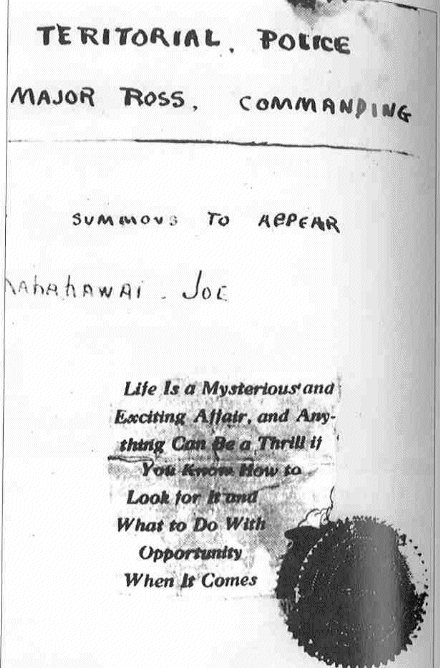 TERITORIAL. POLICE
MAJOR ROSS, COMMANDING
SUMMONS TO APPEAR
KAHAHAWAI. JOE
Life Is a Mysterious and
Exciting Affair, and Any-
thing Can Be a Thrill if
You Know How to
Look for It and
What to Do With
Opportunity
When It Comes